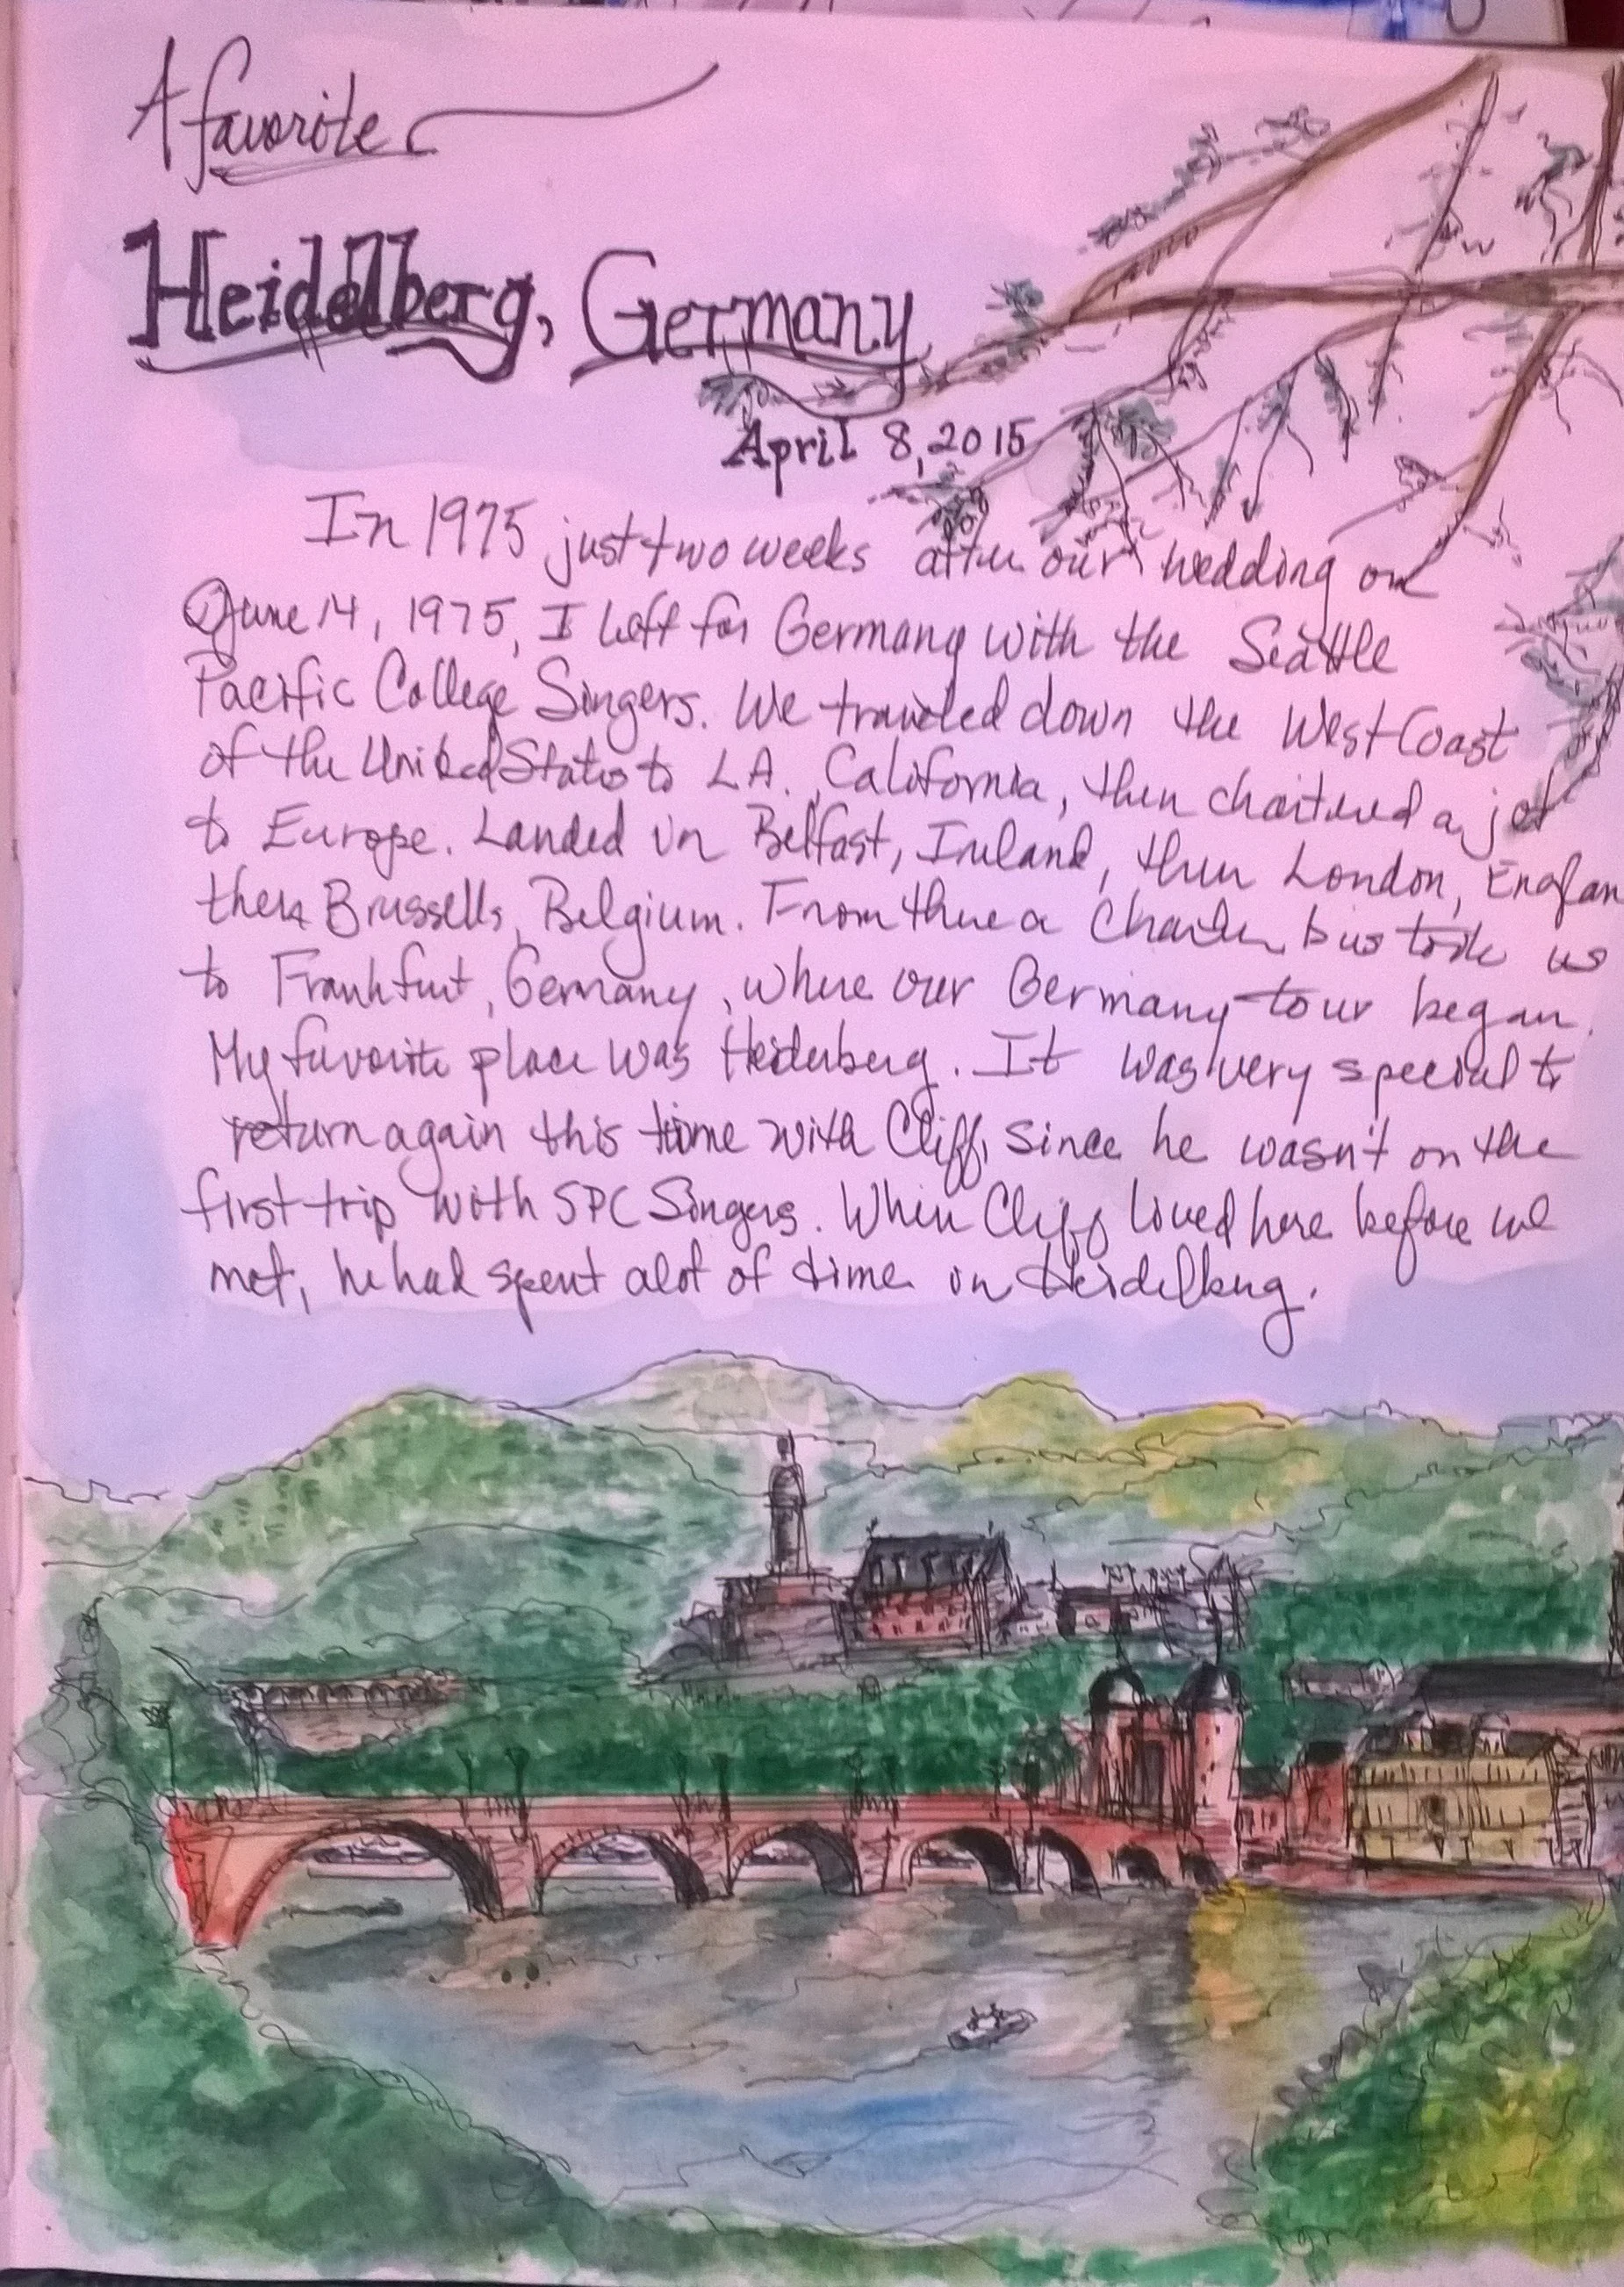 A favorite
Heidelberg, Germany
April 8, 2015
In 1975 just two weeks after our wedding on
June 14, 1975, I left for Germany with the Seattle
Pacific College Singers. We traveled down the West Coast
of the United States to LA., California, then chartered a jet
to Europe. Landed in Belfast, Ireland, then London, Englan
then Brussells, Belgium. From there a Charter bus took us
to Frankfurt, Germany, where our Germany tour began.
My favorite place was Heiderberg. It was very special to
return again this time with Cliff, since he wasn't on the
first trip with SPC Singers. When Cliff lived here before we
met, he had spent alot of time in Heidelberg.